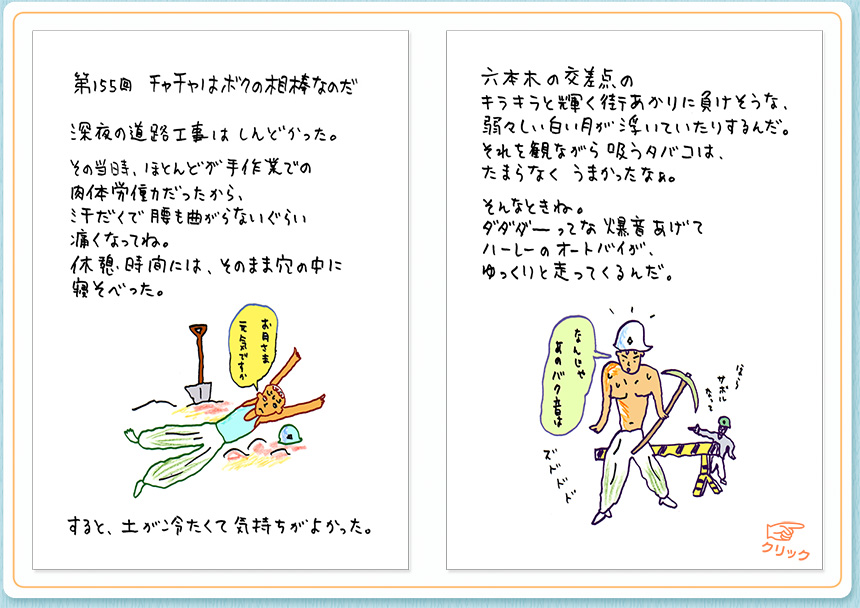 第155回 チャチャはボクの相棒なのだ
深夜の道路工事は しんどかった。
その当時、ほとんどが手作業での
肉体労働力だったから、
汗だくで腰も曲がらないぐらい
痛くなってね。
休憩時間には、そのまま穴の中に
寝そべった。
お月さま
元気ですか
すると、土が冷たくて気持ちがよかった。
六本木の交差点の
キラキラと輝く街あかりに負けそうな、
弱々しい白い月が浮いていたりするんだ。
それを観ながら吸うタバコは、
たまらなく うまかったなぁ。
そんなときね。
ダダダーってな爆音あげて
ハーレーのオートバイが、
ゆっくりと走ってくるんだ。
なんじゃ
あのバク音は
ズドドドド
サボル
なって
クリック